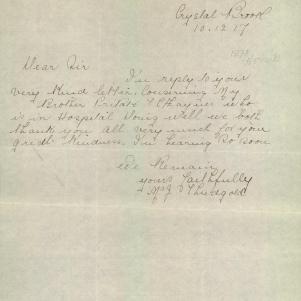 Crystal Brook
10.12.17
Dear Sir
I'm reply to your
very kind letter. Conserning My
Brother Private Thayne who
is in Hospital Doing well we both
thank you all very much for your
great Kindness I'm hearing so soon
We Remain
yours Faithfully